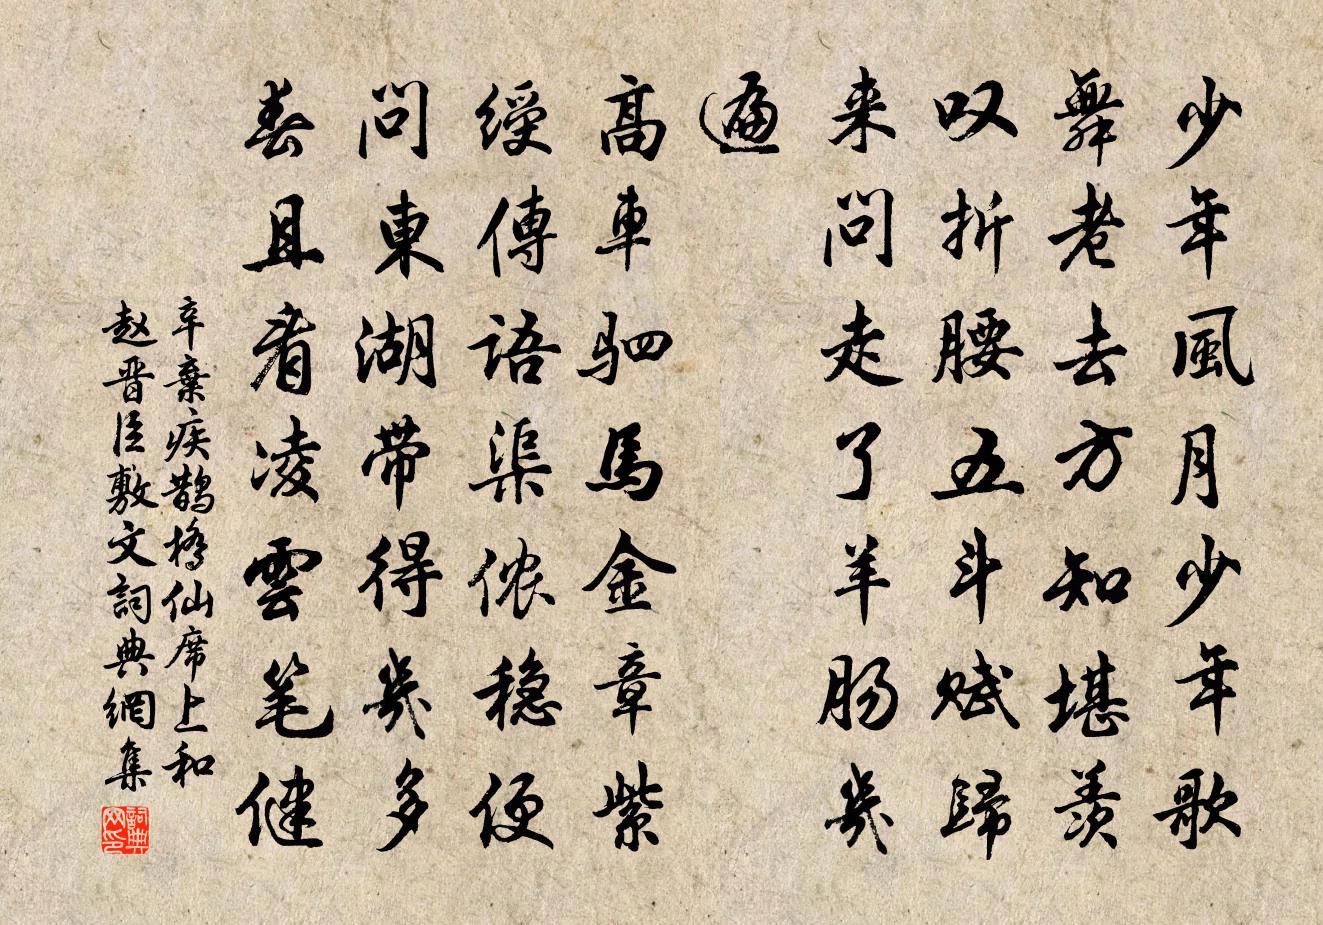 少年風月少年歌
舞老去方知堪羨
叹折腰五斗賦歸
来问走了羊肠幾
遍
高車驷馬金章紫
綬傳語渠侬穏便
问東湖带得幾多
春且看凌雲笔健
辛棄疾鹊橋仙席上和
赵晋臣敷文詞典網集
詞典网印